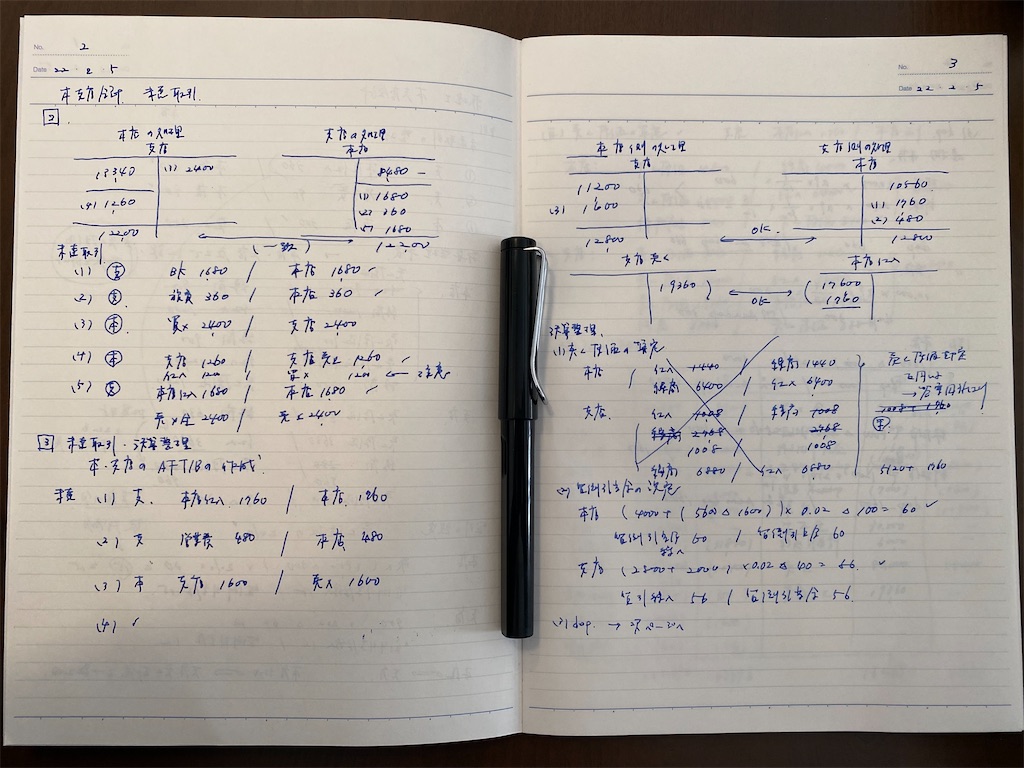 No. 2
Date 22 2 5
本支店会計 未達取引
2
本店の処理
支店
(3) 2400
(4) 1260
12200
支店の処理
本店
8480
(1) 1680
(2) 360
(5) 1680
12200
(一致)
未達取引
(1) 支 BK 1680 / 本店 1680
(2) 支 旅費 360 / 本店 360
(3) 本 買× 2400 / 支店 2400
(4) 本 支店 1260 / 支店売上 1260
(5) 支 本店仕入 1680 / 本店 1680
3 未達取引・決算整理
本・支店の AFTTBの作成
未達 (1) 支 本店仕入 1760 / 本店 1760
(2) 支 営業費 480 / 本店 480
(3) 本 支店 1600 / 売× 1600
(4)
No. 3
Date 22 2 5
本店側の処理
支店
11200
(3) 1600
12800
支店側の処理
本店
10560
(1) 1760
(2) 480
12800
OK
支店売上
19360
本店仕入
17600
1760
OK
決算整理
本店 / 仕入 1440 / 繰商 1440
繰商 6400 / 仕入 6400
支店 仕入 1008 / 繰商 1008
1008 1008
繰商 6880 / 仕入 6880
5120 + 1760
(2) 貸倒引当金の設定
本店 (4000 + (5600 △ 1600)) × 0.02 △ 100 = 60
貸倒引当金繰入 60 / 貸倒引当金 60
支店 (2800 + 2000) × 0.02 △ 40 = 56
貸引繰入 56 / 貸倒引当金 56
(3) dep. → 次ページへ